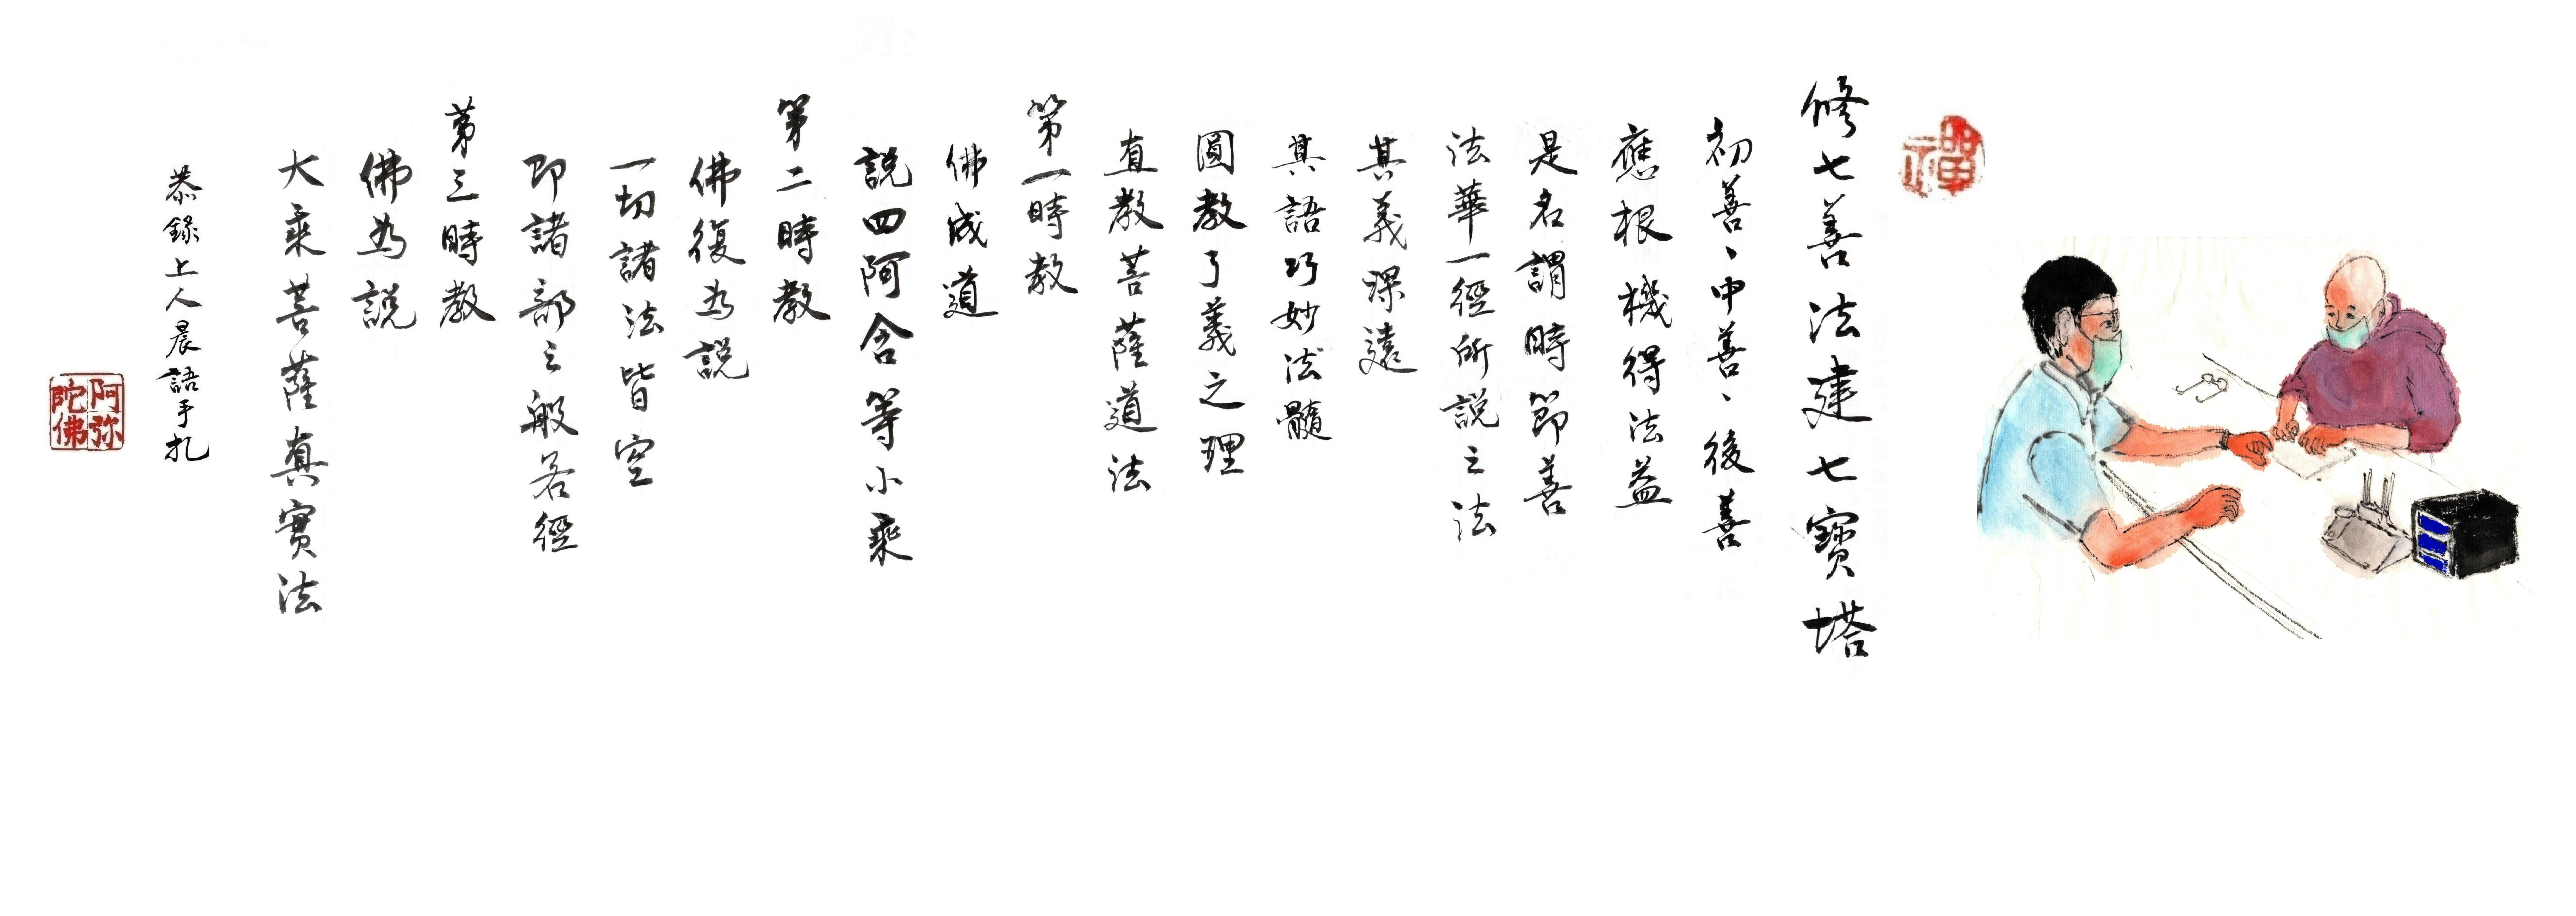 禪
修七善法建七寶塔
初善、中善、後善
應根機得法益
是名謂時節善
法華一經所說之法
其義深遠
其語巧妙法髓
圓教了義之理
直教菩薩道法
第一時教
佛成道
說四阿含等小乘
第二時教
佛復為說
一切諸法皆空
即諸部之般若經
第三時教
佛為說
大乘菩薩真實法
恭錄上人晨語手札
阿弥
陀佛